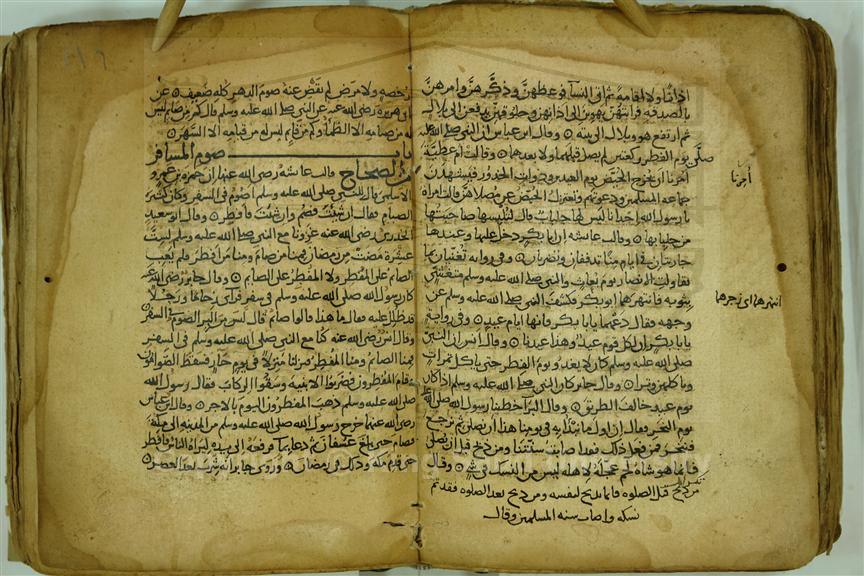 اذانا ولا اقامة ثم اتى النساء فوعظهن وذكرهن وامرهن
بالصدقة فرايتهن يهوين الى اذانهن وحلوقهن يدفعن الى بلال
ثم ارتفع هو وبلال الى بيته وقال ابن عباس ان النبي صلى الله عليه
صلى يوم الفطر ركعتين لم يصل قبلهما ولا بعدهما وقالت ام عطية
امرنا ان نخرج الحيض يوم العيدين وذوات الخدور فيشهدن
جماعة المسلمين ودعوتهم وتعتزل الحيض عن مصلاهن قالت امراة
يا رسول الله احدانا ليس لها جلباب قال لتلبسها صاحبتها
من جلبابها وقالت عائشة ان ابا بكر دخل عليها وعندها
جاريتان في ايام منى تدففان وتضربان وفي رواية تغنيان بما
تقاولت الانصار يوم بعاث والنبي صلى الله عليه وسلم متغش
بثوبه فانتهرهما ابو بكر فكشف النبي صلى الله عليه وسلم عن
وجهه فقال دعهما يا ابا بكر فانها ايام عيد وفي رواية
يا ابا بكر ان لكل قوم عيد وهذا عيدنا وقال انس ان النبي
صلى الله عليه وسلم كان لا يغدو يوم الفطر حتى ياكل تمرات
وياكلهن وترا وقال جابر كان النبي صلى الله عليه وسلم اذا كان
يوم عيد خالف الطريق وقال البرا خطبنا رسول الله صلى الله
يوم النحر فقال ان اول ما نبدا به في يومنا هذا ان نصلي ثم نرجع
فننحر فمن فعل ذلك فقد اصاب سنتنا ومن ذبح قبل ان نصلي
فانما هو شاة لحم عجله لاهله ليس من النسك في شيء وقال
من ذبح قبل الصلوة فانما يذبح لنفسه ومن ذبح بعد الصلوة فقد تم
نسكه واصاب سنة المسلمين وقال
امرنا
انتهرها اى زجرها
رخصة ولا مرض لم يقض عنه صوم الدهر كله ضعيف عن
ابي هريرة رضي الله عنه عن النبي صلى الله عليه وسلم قال كم من صايم ليس
له من صيامه الا الظماء وكم من قايم ليس له من قيامه الا السهر
باب صوم المسافر
من الصحاح قالت عائشة رضي الله عنها ان حمزة بن عمرو
الاسلمي قال للنبي صلى الله عليه وسلم اصوم في السفر وكان كثير
الصيام فقال ان شئت فصم وان شئت فافطر وقال ابو سعيد
الخدري رضي الله عنه غزونا مع النبي صلى الله عليه وسلم لست
عشرة مضت من رمضان فمنا من صام ومنا من افطر فلم يعب
الصايم على المفطر ولا المفطر على الصايم وقال جابر رضي الله عنه
كان رسول الله صلى الله عليه وسلم في سفر فراى زحاما ورجلا
قد ظلل عليه فقال ما هذا قالوا صائم قال ليس من البر الصوم في السفر
وقال انس رضي الله عنه كنا مع النبي صلى الله عليه وسلم في السفر
فمنا الصائم ومنا المفطر فنزلنا منزلا في يوم حار فسقط الصوامون
وقام المفطرون فضربوا الابنية وسقوا الركاب فقال رسول الله
صلى الله عليه وسلم ذهب المفطرون اليوم بالاجر وقال ابن عباس
رضي الله عنهما خرج رسول الله صلى الله عليه وسلم من المدينة الى مكة
فصام حتى بلغ عسفان ثم دعا بماء فرفعه الى يده ليراه الناس فافطر
حتى قدم مكة وذلك في رمضان وروى جابر انه شرب بعد العصر